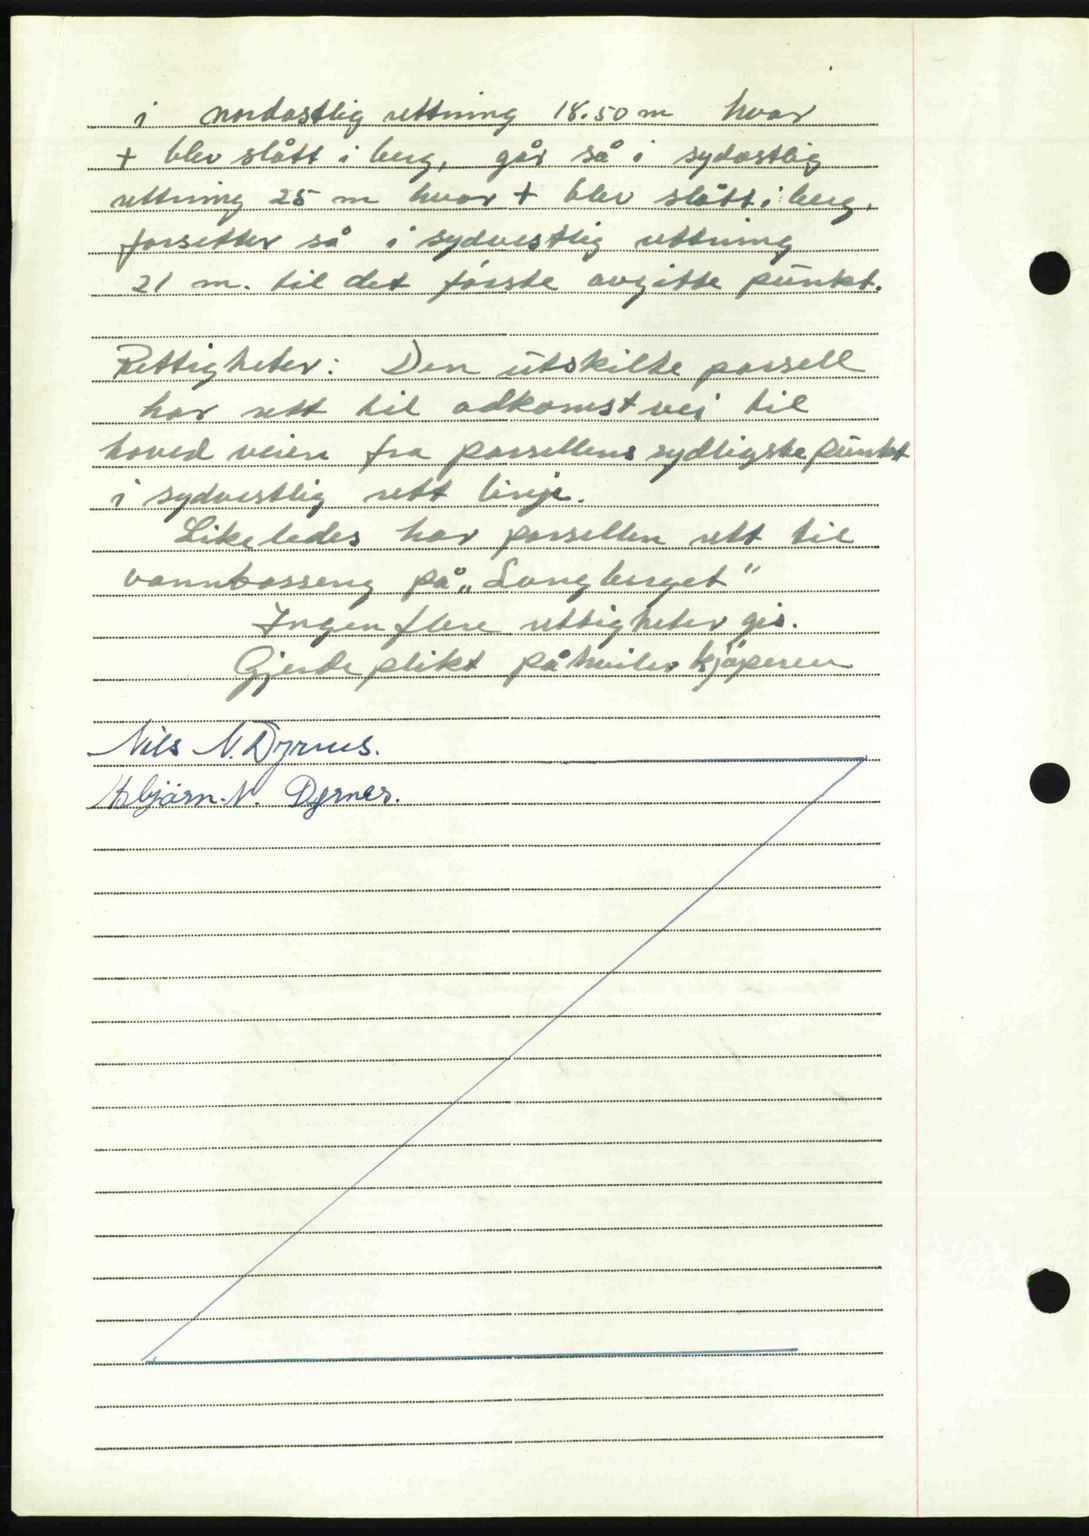 i nordostlig rettning 18.50 m hvor
+ blev slått i berg, går så i sydostlig
rettning 25 m hvor + blev slått i berg,
forsetter så i sydvestlig rettning
21 m. til det första avgitte punkt.
Rettigheter: Den utskilte parsell
har rett til adkomst vei til
hoved veien fra parsellens sydligste punkt
i sydvestlig rett linje.
Likeledes har parsellen rett til
vannbasseng på „Langberget"
Ingen flere rettigheter gis.
Gjerde plikt påhviler kjöperen
Nils N. Dyrnes.
Asbjörn. N. Dyrnes.